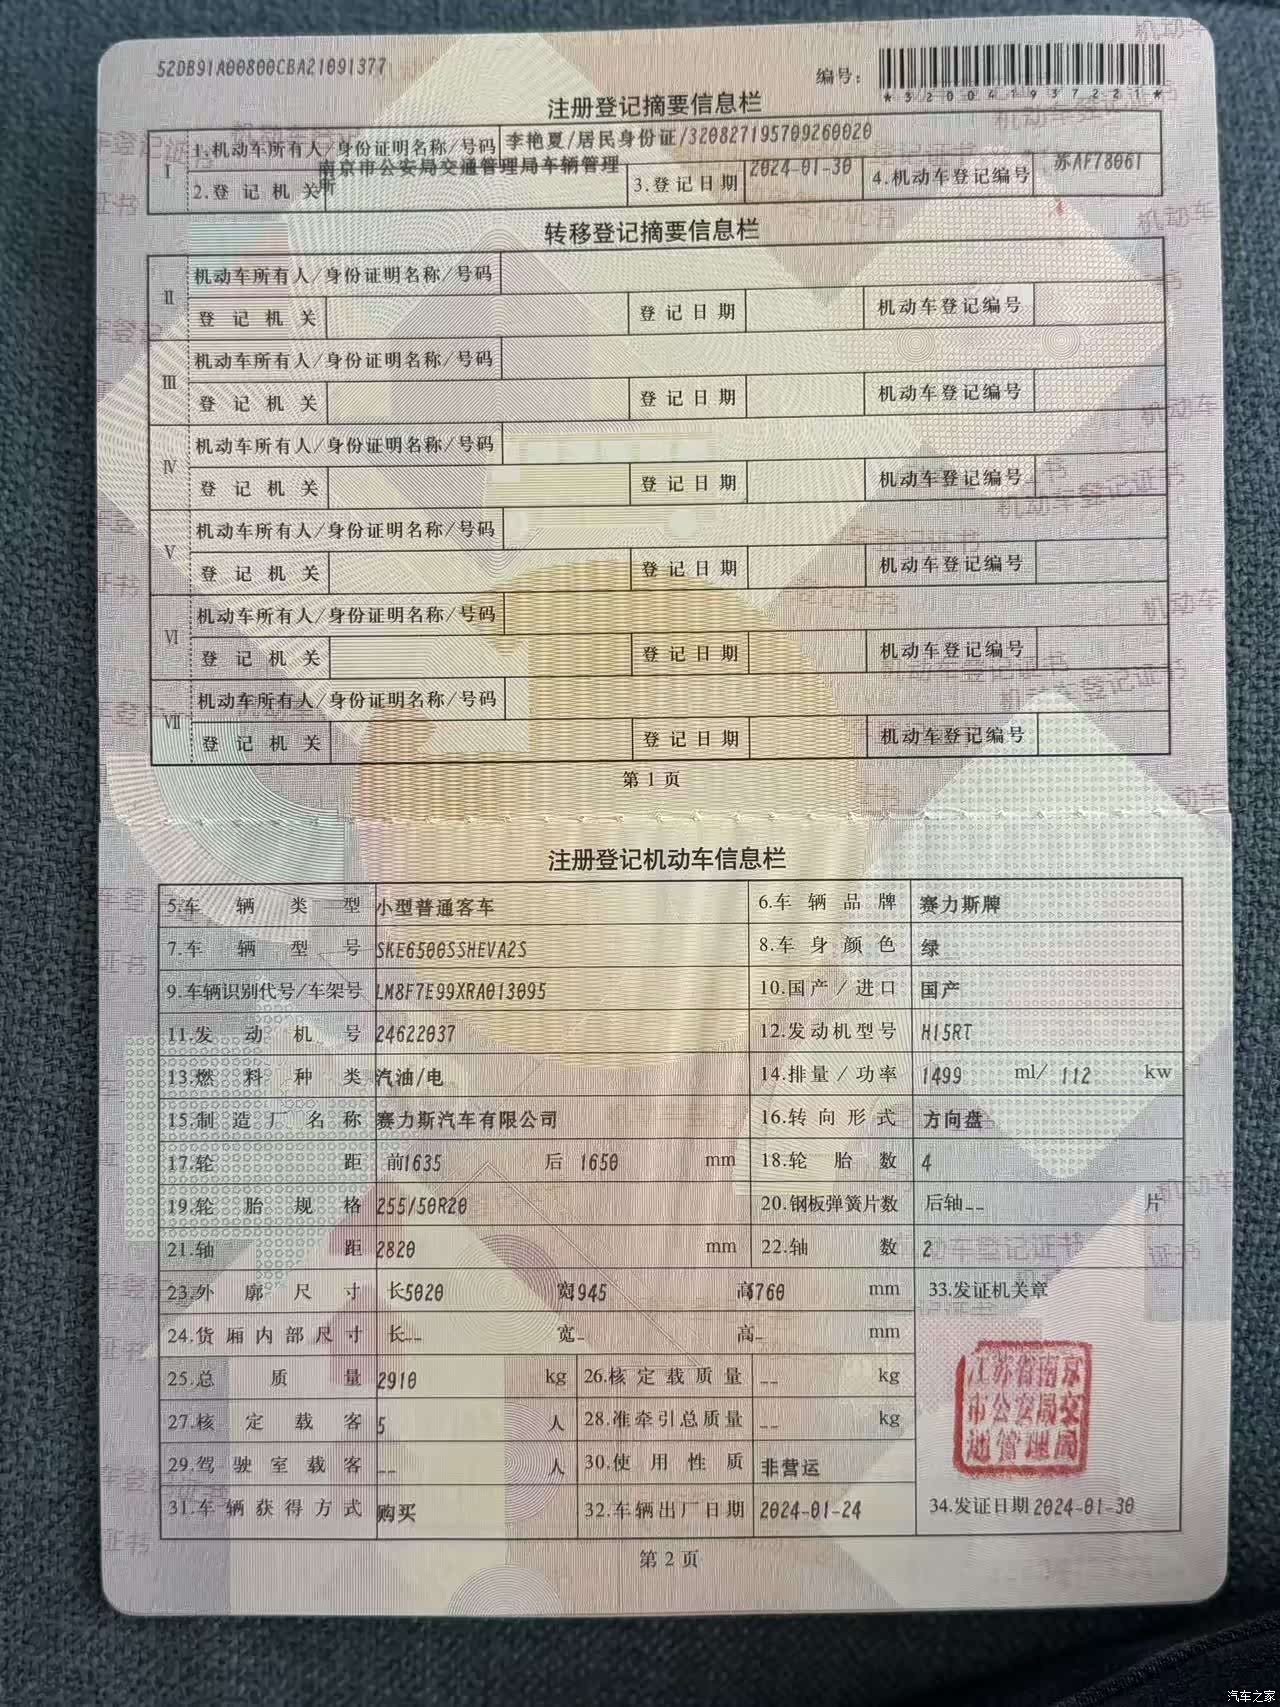 52DB91A00800CBA21091377
编号：
*320041937221*
注册登记摘要信息栏
I 1.机动车所有人/身份证明名称/号码 李艳夏/居民身份证/320827195709260020
2.登记机关 南京市公安局交通管理局车辆管理所 3.登记日期 2024-01-30 4.机动车登记编号 苏AF78061
转移登记摘要信息栏
II 机动车所有人/身份证明名称/号码
登记机关 登记日期 机动车登记编号
III 机动车所有人/身份证明名称/号码
登记机关 登记日期 机动车登记编号
IV 机动车所有人/身份证明名称/号码
登记机关 登记日期 机动车登记编号
V 机动车所有人/身份证明名称/号码
登记机关 登记日期 机动车登记编号
VI 机动车所有人/身份证明名称/号码
登记机关 登记日期 机动车登记编号
VII 机动车所有人/身份证明名称/号码
登记机关 登记日期 机动车登记编号
第1页
注册登记机动车信息栏
5.车辆类型 小型普通客车 6.车辆品牌 赛力斯牌
7.车辆型号 SKE6500SSHEVA2S 8.车身颜色 绿
9.车辆识别代号/车架号 LM8F7E99XRA013095 10.国产/进口 国产
11.发动机号 24622037 12.发动机型号 H15RT
13.燃料种类 汽油/电 14.排量/功率 1499 ml/ 112 kw
15.制造厂名称 赛力斯汽车有限公司 16.转向形式 方向盘
17.轮距 前1635 后 1650 mm 18.轮胎数 4
19.轮胎规格 255/50R20 20.钢板弹簧片数 后轴-- 片
21.轴距 2820 mm 22.轴数 2
23.外廓尺寸 长5020 宽1945 高1760 mm 33.发证机关章
24.货厢内部尺寸 长-- 宽- 高- mm
25.总质量 2910 kg 26.核定载质量 -- kg
27.核定载客 5 人 28.准牵引总质量 -- kg
江苏省南京
市公安局交
通管理局
29.驾驶室载客 -- 人 30.使用性质 非营运
31.车辆获得方式 购买 32.车辆出厂日期 2024-01-24 34.发证日期 2024-01-30
第2页
汽车之家